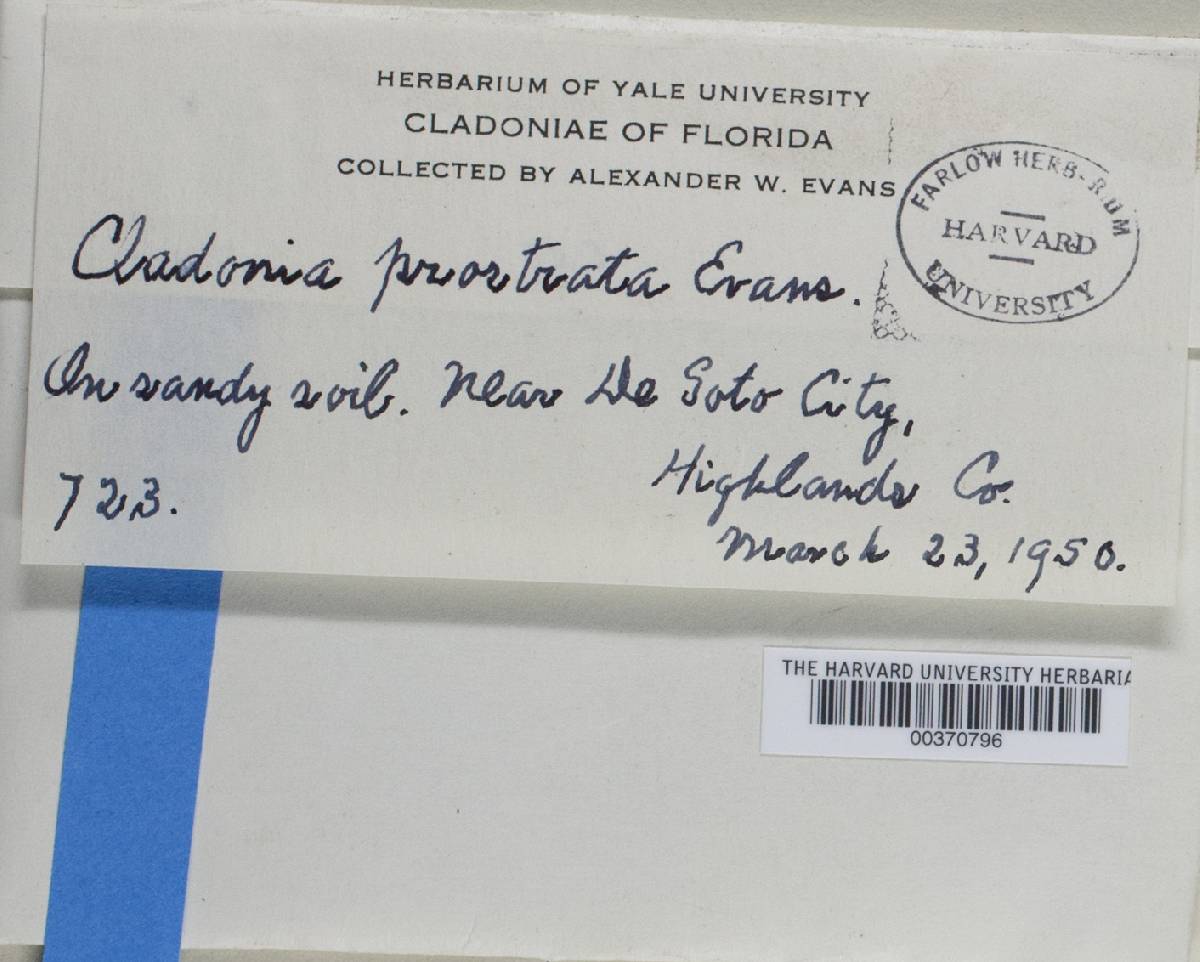 HERBARIUM OF YALE UNIVERSITY
CLADONIAE OF FLORIDA
COLLECTED BY ALEXANDER W. EVANS
FARLOW HERB-RUM
HARVARD
UNIVERSITY
Cladonia prostrata Evans.
On sandy soil. Near De Soto City,
Highlands Co.
723.
March 23, 1950.
THE HARVARD UNIVERSITY HERBARIA
00370796